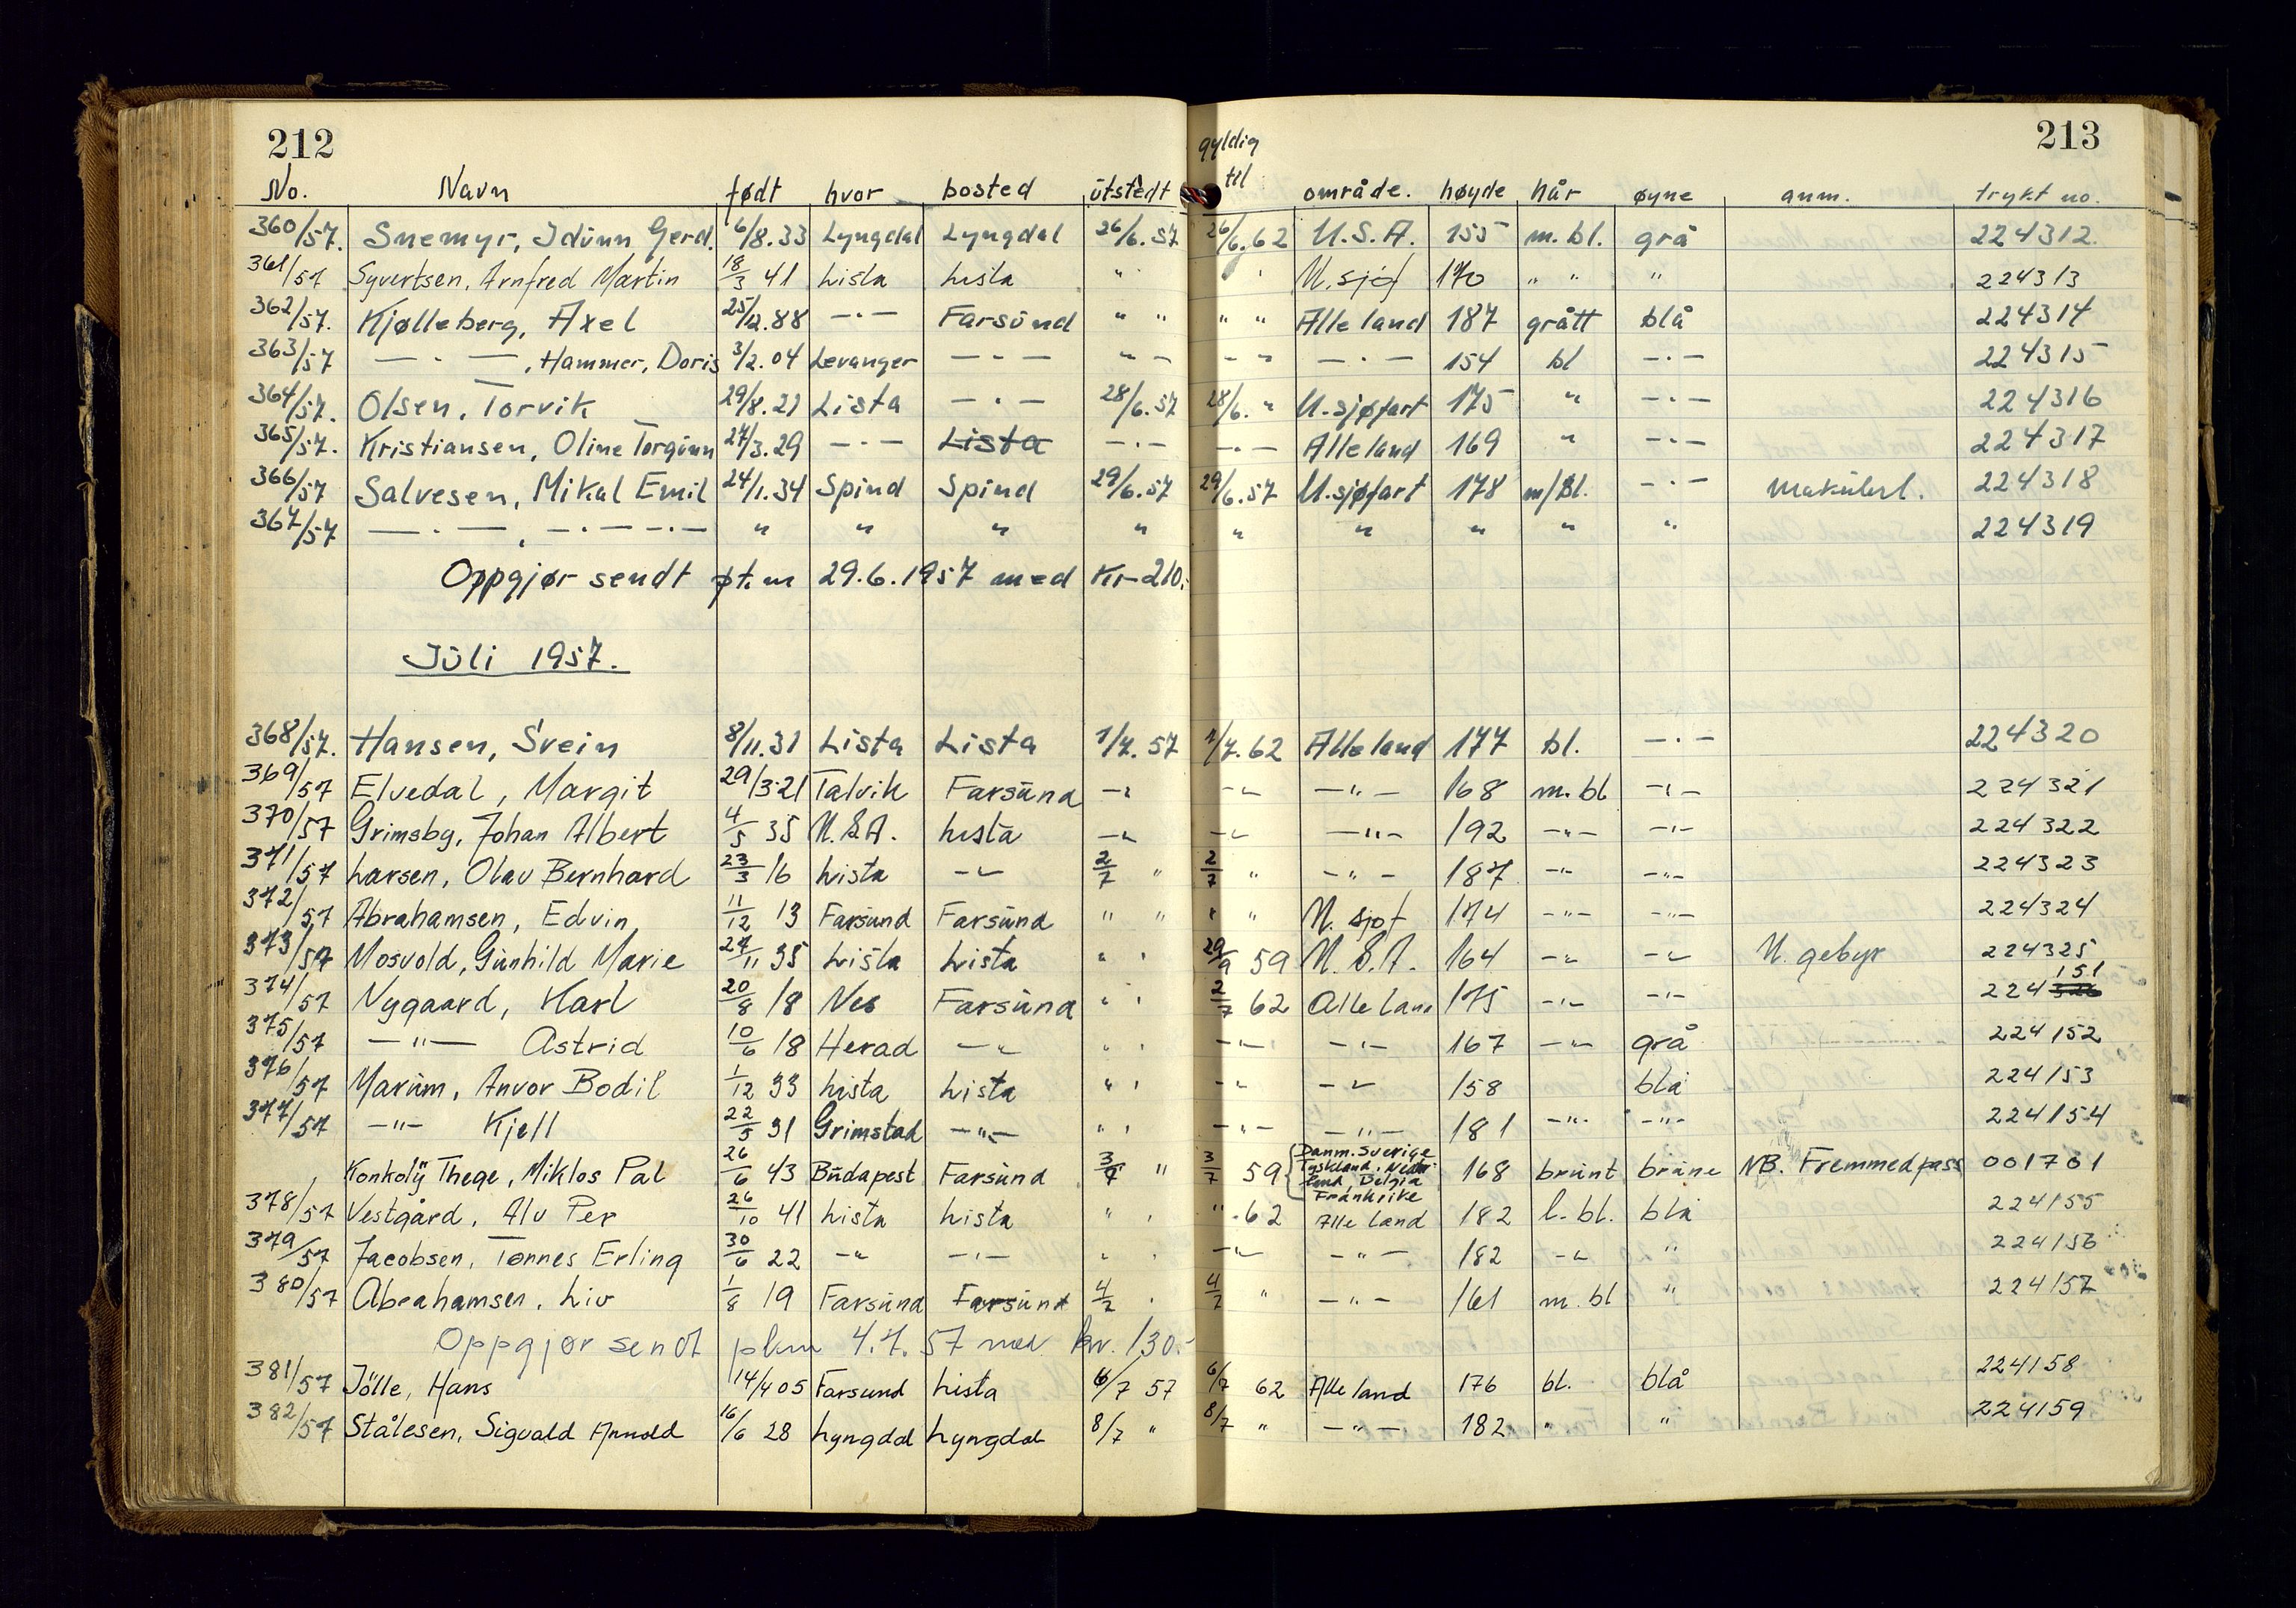 212 213
gyldig
No. Navn født hvor bosted utstedt til område. høyde hår øyne anm. trykt no.
360/57. Snemyr, Idunn Gerd. 6/8.33 Lyngdal Lyngdal 26/6.57 26/6.62 U.S.A. 155 m.bl. grå 224312.
361/57 Syvertsen, Arnfred Martin 18/3 41 Lista Lista " " U.sjøf 170 " " " 224313
362/57. Kjølleberg, Axel 25/12.88 —·— Farsund " " " " Alle land 187 grått blå 224314
363/57 —·—, Hammer, Doris 3/2.04 Levanger —·— " — — " —·— 154 bl —·— 224315
364/57. Olsen, Torvik 29/8.21 Lista —·— 28/6.57 28/6. " U.sjøfart 175 " —·— 224316
365/57. Kristiansen, Oline Torgunn 27/3.29 —·— Lista —·— —·— Alle land 169 " —·— 224317
366/57 Salvesen, Mikal Emil 24/1.34 Spind Spind 29/6.57 29/6.57 U.sjøfart 178 m/Bl. —·— 224318
367/57 —·—, —·— —·— " " " " " " " " " 224319
Oppgjør sendt pt.m 29.6.1957 med Kr 210.-
Juli 1957.
368/57. Hansen, Svein 8/11.31 Lista Lista 1/7.57 1/7.62 Alle land 177 bl. —·— 224320
369/57 Elvedal, Margit 29/3 21 Talvik Farsund —"— —"— —"— 168 m.bl —"— 224321
370/57 Grimsby, Johan Albert 4/5 35 U.S.A. Lista —"— —"— —"— 192 —"— —"— 224322
371/57 Larsen, Olav Bernhard 23/3 16 Lista —"— 2/7 " 2/7 " —"— 187 —"— —"— 224323
372/57 Abrahamsen, Edvin 11/12 13 Farsund Farsund " " " " U. sjøf 174 —"— —"— 224324
373/57 Mosvold, Gunhild Marie 27/11 35 Lista Lista " " 29/9 59 U.S.A. 164 —"— —"— U. gebyr 224325
374/57 Nygaard, Karl 20/8 18 Nes Farsund " " 2/7 62 Alle land 175 —"— —"— 224 326 151
375/57 —"— Astrid 10/6 18 Herad —"— " " —"— —"— 167 —"— grå 224152
376/57 Marum, Anvor Bodil 1/12 33 Lista Lista " " —"— —"— 158 blå 224153
377/57 —"— Kjell 22/5 31 Grimstad —"— " " —"— —"— 181 —"— —"— 224154
Konkolÿ Thege, Miklos Pal 26/6 43 Budapest Farsund 3/7 " 3/7 59 Danm. Sverige Tyskland. Nederland Belgia Frankrike 168 brunt brune NB. Fremmedpass 001761
378/57 Vestgård, Alv Per 26/10 41 Lista Lista " " ".62 Alle land 182 l.bl. blå 224155
379/57 Jacobsen, Tønnes Erling 30/6 22 —"— —"— " " —"— —"— 182 —"— " 224156
380/57 Abrahamsen, Liv 1/8 19 Farsund Farsund 4/7 " 4/7 " —"— 161 m.bl " 224157
Oppgjør sendt pkm 4.7.57 med kr. 130.-
381/57 Jölle, Hans 14/4 05 Farsund Lista 6/7 57 6/7 62 Alle land 176 bl. blå 224158
382/57 Stålesen, Sigvald Arnold 16/6 28 Lyngdal Lyngdal 8/7 " 8/7 " —"— 182 " " 224159